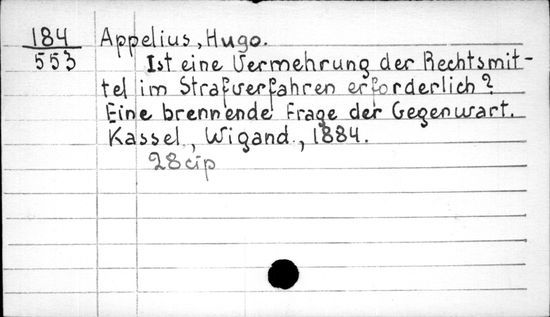 184 Appelius, Hugo.
553 Ist eine Vermehrung der Rechtsmit-
tel im Strafverfahren erforderlich?
Eine brennende Frage der Gegenwart.
Kassel, Wigand, 1884.
28 cip